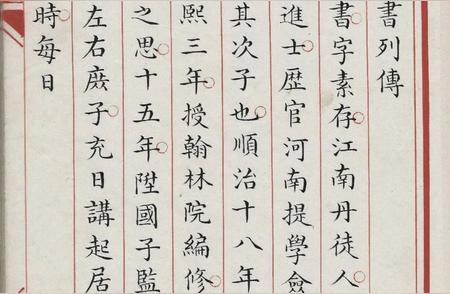 書列傳
書字素存江南丹徒人
進士歷官河南提學僉
其次子也順治十八年
熙三年授翰林院編修
之思十五年陞國子監
左右庶子充日講起居
時每日